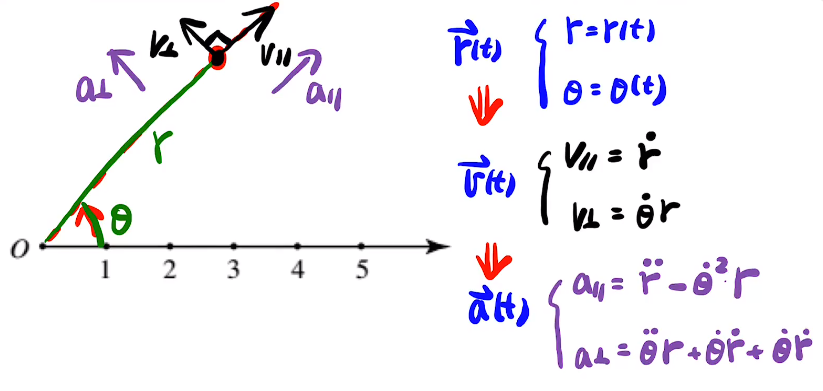 V⊥
V∥
a⊥
a∥
r
θ
O
1 2 3 4 5
r⃗(t) { r = r(t)
θ = θ(t)
⇓
v⃗(t) { V∥ = ṙ
V⊥ = θ̇r
⇓
a⃗(t) { a∥ = r̈ - θ̇²r
a⊥ = θ̈r + θ̇ṙ + θ̇ṙ